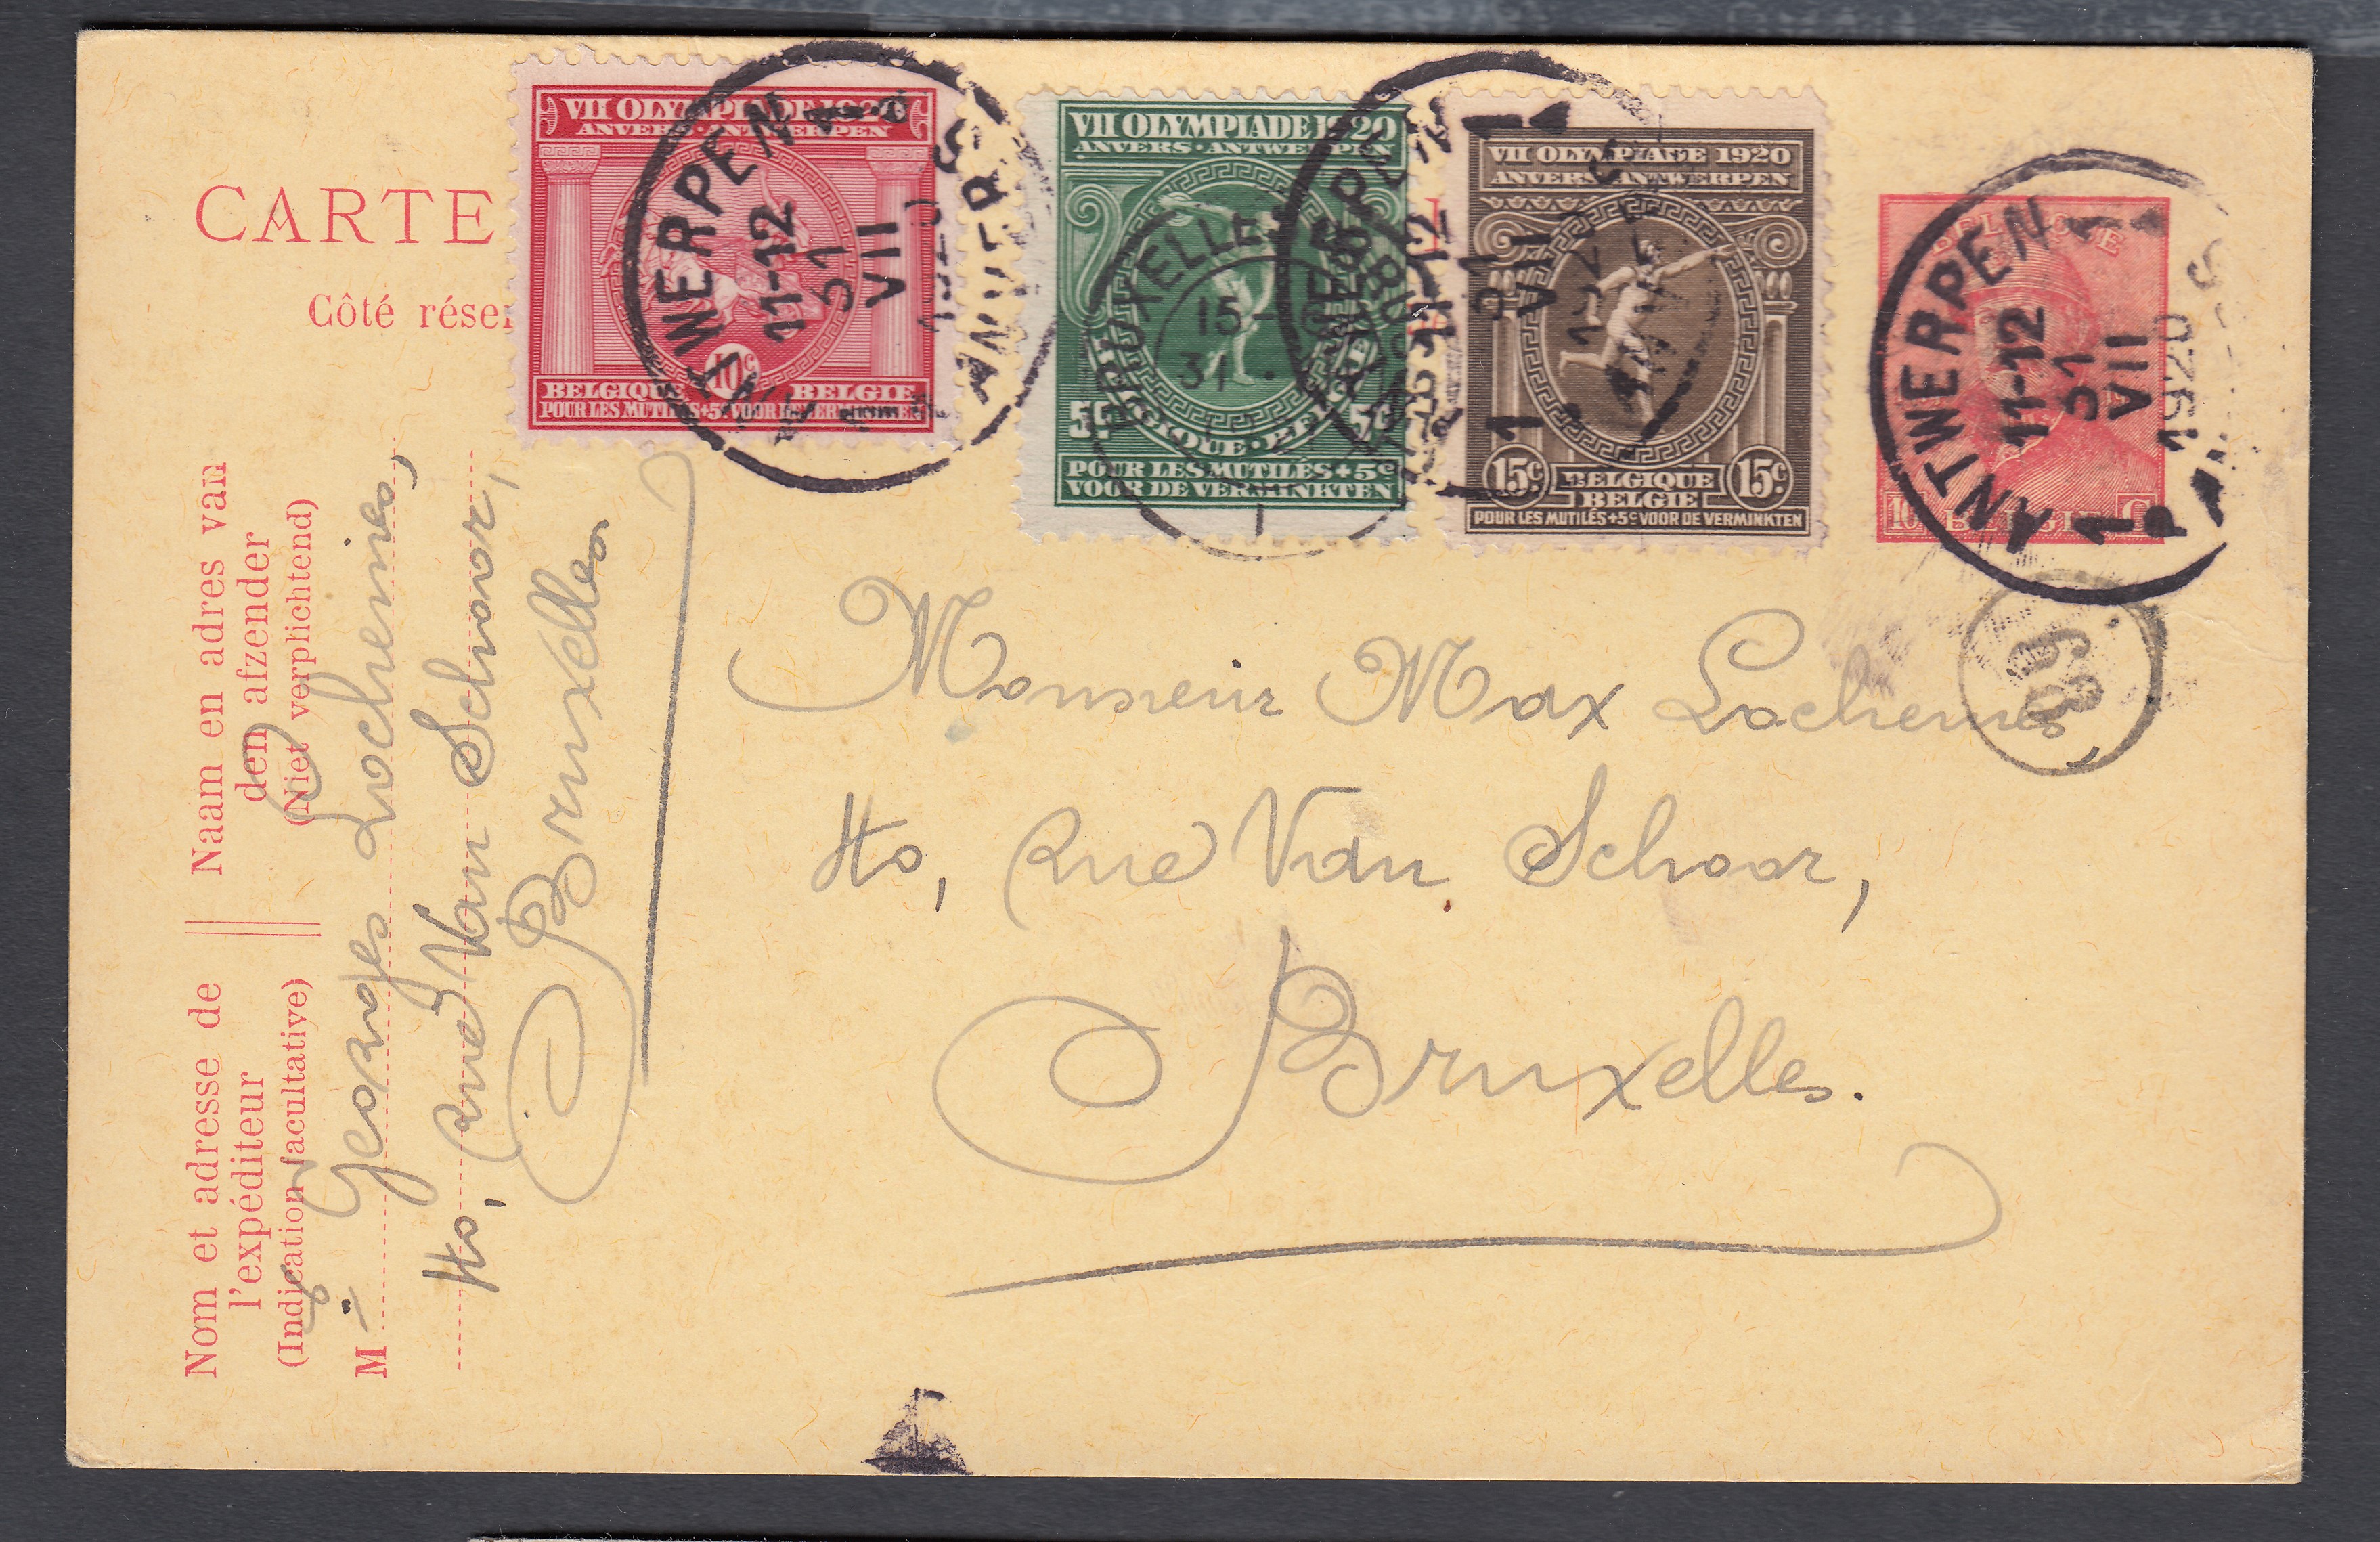 CARTE
Côté réser
VII OLYMPIADE 1920
ANVERS · ANTWERPEN
10c
BELGIQUE BELGIE
POUR LES MUTILÉS+5c VOOR DE VERMINKTEN
ANTWERPEN
11-12
31
VII
1920
ANVERS
VII OLYMPIADE 1920
ANVERS · ANTWERPEN
5c 5c
BELGIQUE · BELGIE
POUR LES MUTILÉS+5c
VOOR DE VERMINKTEN
BRUXELLES
15-
31
VII OLYMPIADE 1920
ANVERS ANTWERPEN
15c BELGIQUE 15c
BELGIE
POUR LES MUTILÉS+5c VOOR DE VERMINKTEN
1
11-12
31
VII
1
BELGIQUE
10 BELGIE C
ANTWERPEN 1
11-12
31
VII
1920
1 P
Naam en adres van
den afzender
(Niet verplichtend)
Nom et adresse de
l'expéditeur
(Indication facultative)
M
Georges Lochemies,
40, rue Van Schoor,
Bruxelles
Monsieur Max Lochemies,
40, Rue Van Schoor,
Bruxelles.